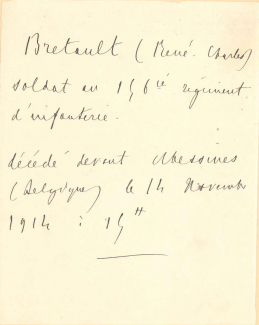 Bretault (René. Charles)
soldat au 156ié régiment
d'infanterie.
décédé devant Messines
(Belgique) le 14 Novembr
1914 à 15H